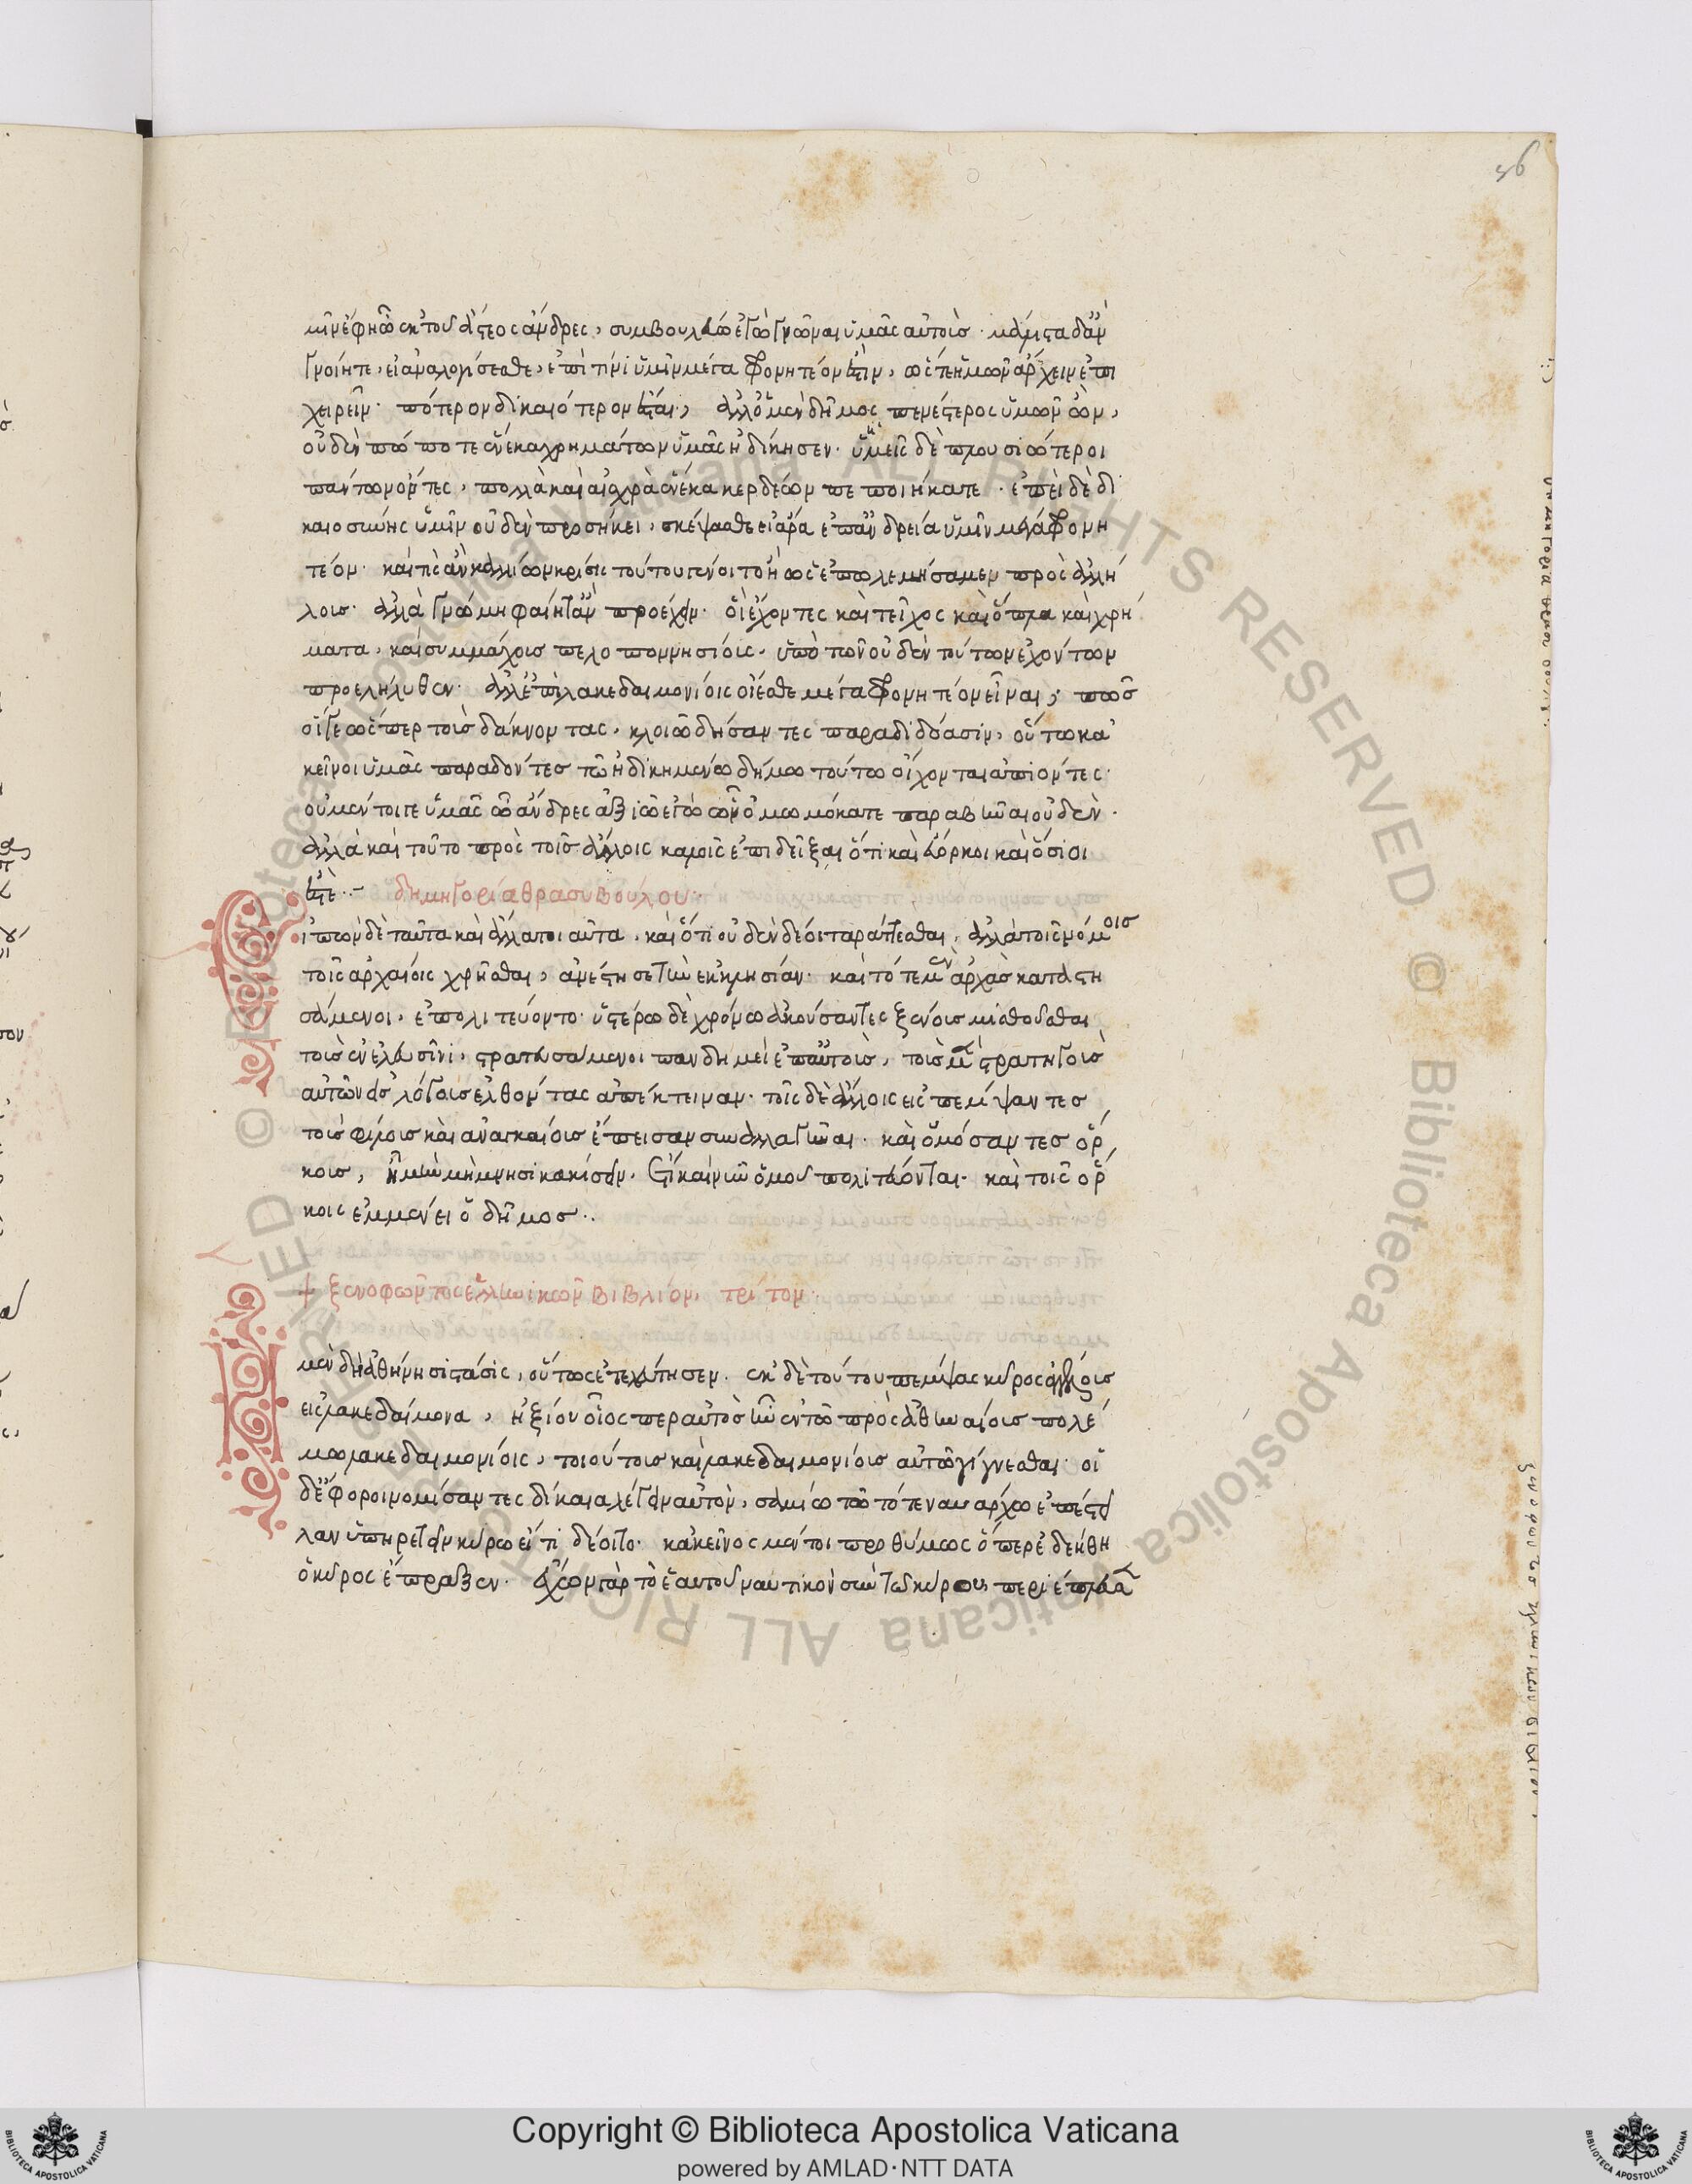 56
μῖν ἔφη ὦ ἐκ τοῦ ἄστεος ἄνδρες, συμβουλεύω ἐγὼ γνῶναι ὑμᾶς αὐτοὺς· μάλιστα δ' ἂν
γνοίητε, εἰ ἀναλογίσεσθε, ἐπὶ τίνι ὑμῖν μέγα φρονητέον ἐστὶν, ὥστε ἡμῶν ἄρχειν ἐπι
χειρεῖν· πότερον δικαιότεροι ἐστέ; ἀλλ' ὁ μὲν δῆμος πενέστερος ὑμῶν ὢν,
οὐδὲν πώποτε ἕνεκα χρημάτων ὑμᾶς ἠδίκησεν· ὑμεῖς δὲ πλουσιώτεροι
πάντων ὄντες, πολλὰ καὶ αἰσχρὰ ἕνεκα κερδέων πεποιήκατε· ἐπεὶ δὲ δι
καιοσύνης ὑμῖν οὐδὲν προσήκει, σκέψασθε εἰ ἄρα ἐπ' ἀνδρεία ὑμῖν μέγα φρονη
τέον· καὶ τίς ἂν καλλίων κρίσις τούτου γένοιτο ἢ ὡς ἐπολεμήσαμεν πρὸς ἀλλή
λους· ἀλλὰ γνώμη φαίητ' ἂν προέχειν· οἳ ἔχοντες καὶ τεῖχος καὶ ὅπλα καὶ χρή
ματα, καὶ συμμάχους πελοποννησίους, ὑπὸ τῶν οὐδὲν τούτων ἐχόντων
προεληλύθεν· ἀλλ' ἐπὶ λακεδαιμονίοις οἴεσθε μέγα φρονητέον εἶναι; πῶς
οἵ γε ὥσπερ τοὺς δάκνοντας, κλοιῷ δήσαντες παραδιδόασιν, οὕτω κα
κεῖνοι ὑμᾶς παραδόντες τῷ ἠδικημένῳ δήμῳ τούτῳ οἴχονται ἀπιόντες·
οὐ μέντοι γε ὑμᾶς ὦ ἄνδρες ἀξιῶ ἐγὼ ὧν ὀμωμόκατε παραβῆναι οὐδέν·
ἀλλὰ καὶ τοῦτο πρὸς τοῖς ἄλλοις καλοῖς ἐπιδεῖξαι ὅτι καὶ εὔορκοι καὶ ὅσιοι
ἐστέ·- δημηγορία θρασυβούλου·
ἰπὼν δὲ ταῦτα καὶ ἄλλα τοιαῦτα, καὶ ὅτι οὐδὲν δέοι ταράττεσθαι, ἀλλὰ τοῖς νόμοις
τοῖς ἀρχαίοις χρῆσθαι, ἀνέστησε τὴν ἐκκλησίαν· καὶ τότε μὲν ἀρχὰς καταστη
σάμενοι, ἐπολιτεύοντο· ὑστέρω δὲ χρόνω ἀκούσαντες ξένους μισθοῦσθαι
τοὺς ἐν ἐλευσῖνι, στρατευσάμενοι πανδημεὶ ἐπ' αὐτοὺς, τοὺς μὲν στρατηγοὺς
αὐτῶν εἰς λόγους ἐλθόντας ἀπέκτειναν· τοῖς δὲ ἄλλοις εἰσπέμψαντες
τοὺς φίλους καὶ ἀναγκαίους ἔπεισαν συναλλαγῆναι· καὶ ὀμόσαντες ὅρ
κους, ἦ μὴν μὴ μνησικακήσειν, ἔτι καὶ νῦν ὁμοῦ πολιτεύονται· καὶ τοῖς ὅρ
κοις ἐμμένει ὁ δῆμος..
+ ξενοφῶντος ἑλληνικῶν βιβλίον, τρίτον·
μὲν δὴ ἀθήνησι στάσις, οὕτως ἐτελεύτησεν. ἐκ δὲ τούτου πέμψας κῦρος ἀγγέλους
εἰς λακεδαίμονα, ἠξίου οἷος περ αὐτὸς ἦν ἐν τῷ πρὸς ἀθηναίους πολέ
μω λακεδαιμονίοις, τοιούτους καὶ λακεδαιμονίους αὐτῷ γίγνεσθαι· οἱ
δ' ἔφοροι νομίσαντες δίκαια λέγειν αὐτὸν, σαμίω τῷ τότε ναυάρχω ἐπέστει
λαν ὑπηρετεῖν κύρω εἴ τι δέοιτο· κἀκεῖνος μέντοι προθύμως ὅπερ ἐδεήθη
ὁ κῦρος ἔπραξεν· ἔχων γὰρ τὸ ἑαυτοῦ ναυτικὸν σὺν τῷ κύρου, περιέπλευσεν